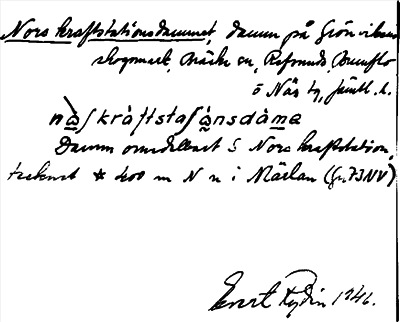 Nors kraftstationsdammet, damm på Grönvikens
skogmark, Mäcke en, Refsunds, Brunflo
o Näs tg, Jämtl. l.
nàskràftstaʃànsdàme
Damm omedelbart S Nors kraftstation,
tecknat * 400 m N n i Mäelan (Gr. 73 NV)
Evert Rydin 1946.